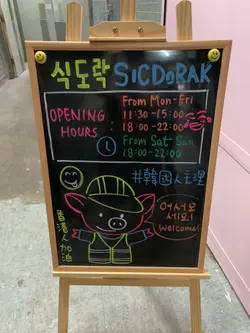 식도락 SICDoRAK
OPENING HOURS :
From Mon-Fri
11:30-15:00
18:00-22:00
From Sat-Sun
18:00-22:00
#韓國人主理
香港人加油
어서오세요!
Welcome!